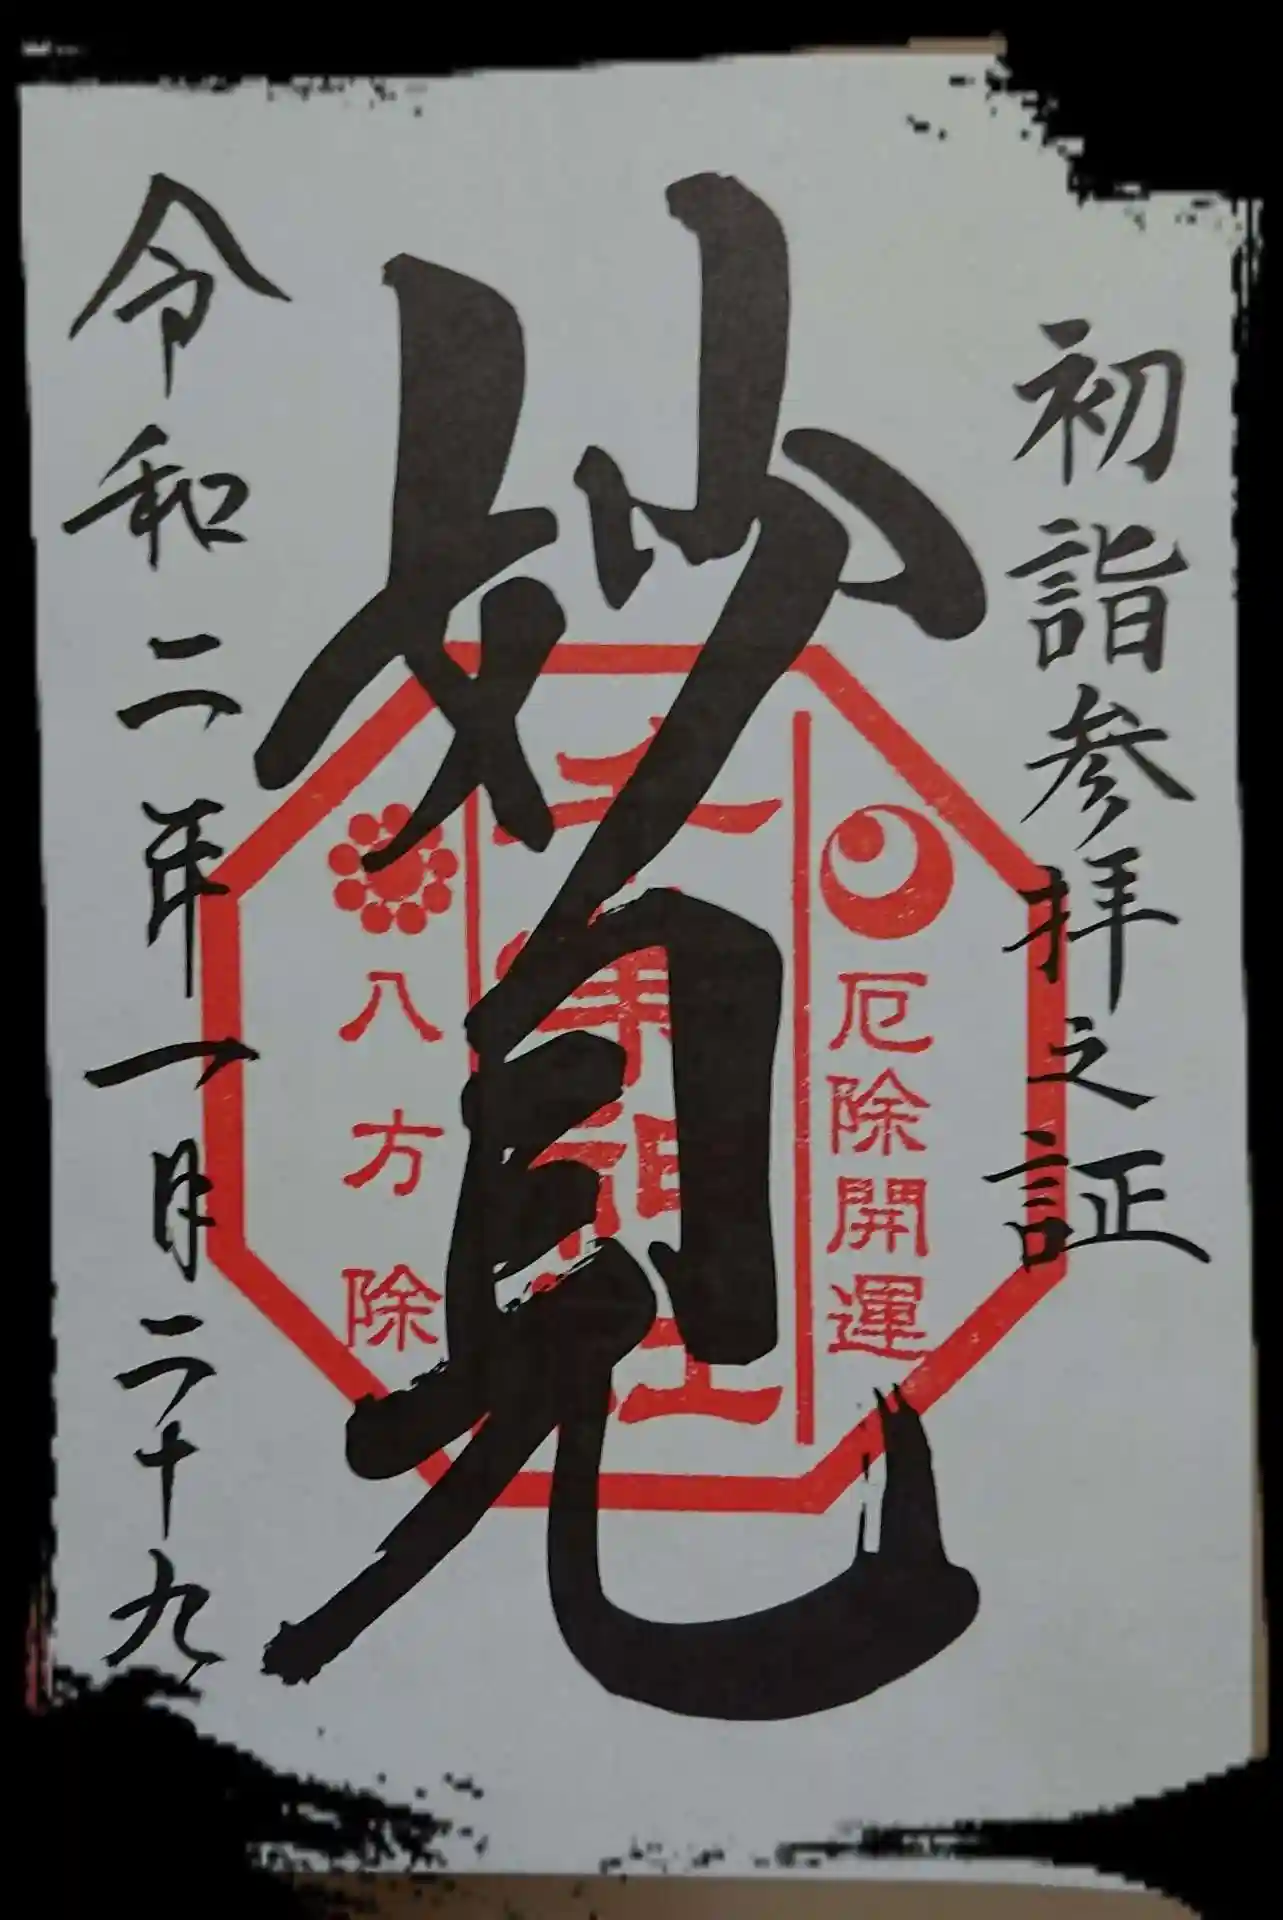 初詣参拝之証
妙見
厄除開運
八方除
令和二年一月二十九